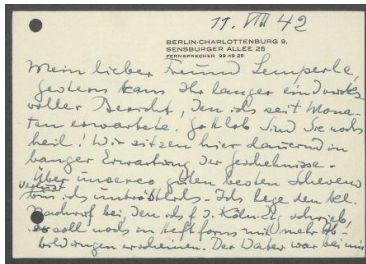 11. VIII 42
BERLIN-CHARLOTTENBURG 9,
SENSBURGER ALLEE 25
FERNSPRECHER
Mein lieber Freund Lemperle,
gestern kam Ihr langer eindrucks
voller Bericht, den ich seit Mona-
ten erwartete. Gottlob sind Sie noch
heil! Wir sitzen hier dauernd in
banger Erwartung der Geschehnisse.
Über unseres guten besten Scheven
Verlust bin ich untröstlich. Ich lege den
Nachruf bei, den ich f. d. Köln. Ztg. schrieb,
er soll noch in Heftform mit mehr Ab-
bildungen erscheinen. Der Vater war bei mir